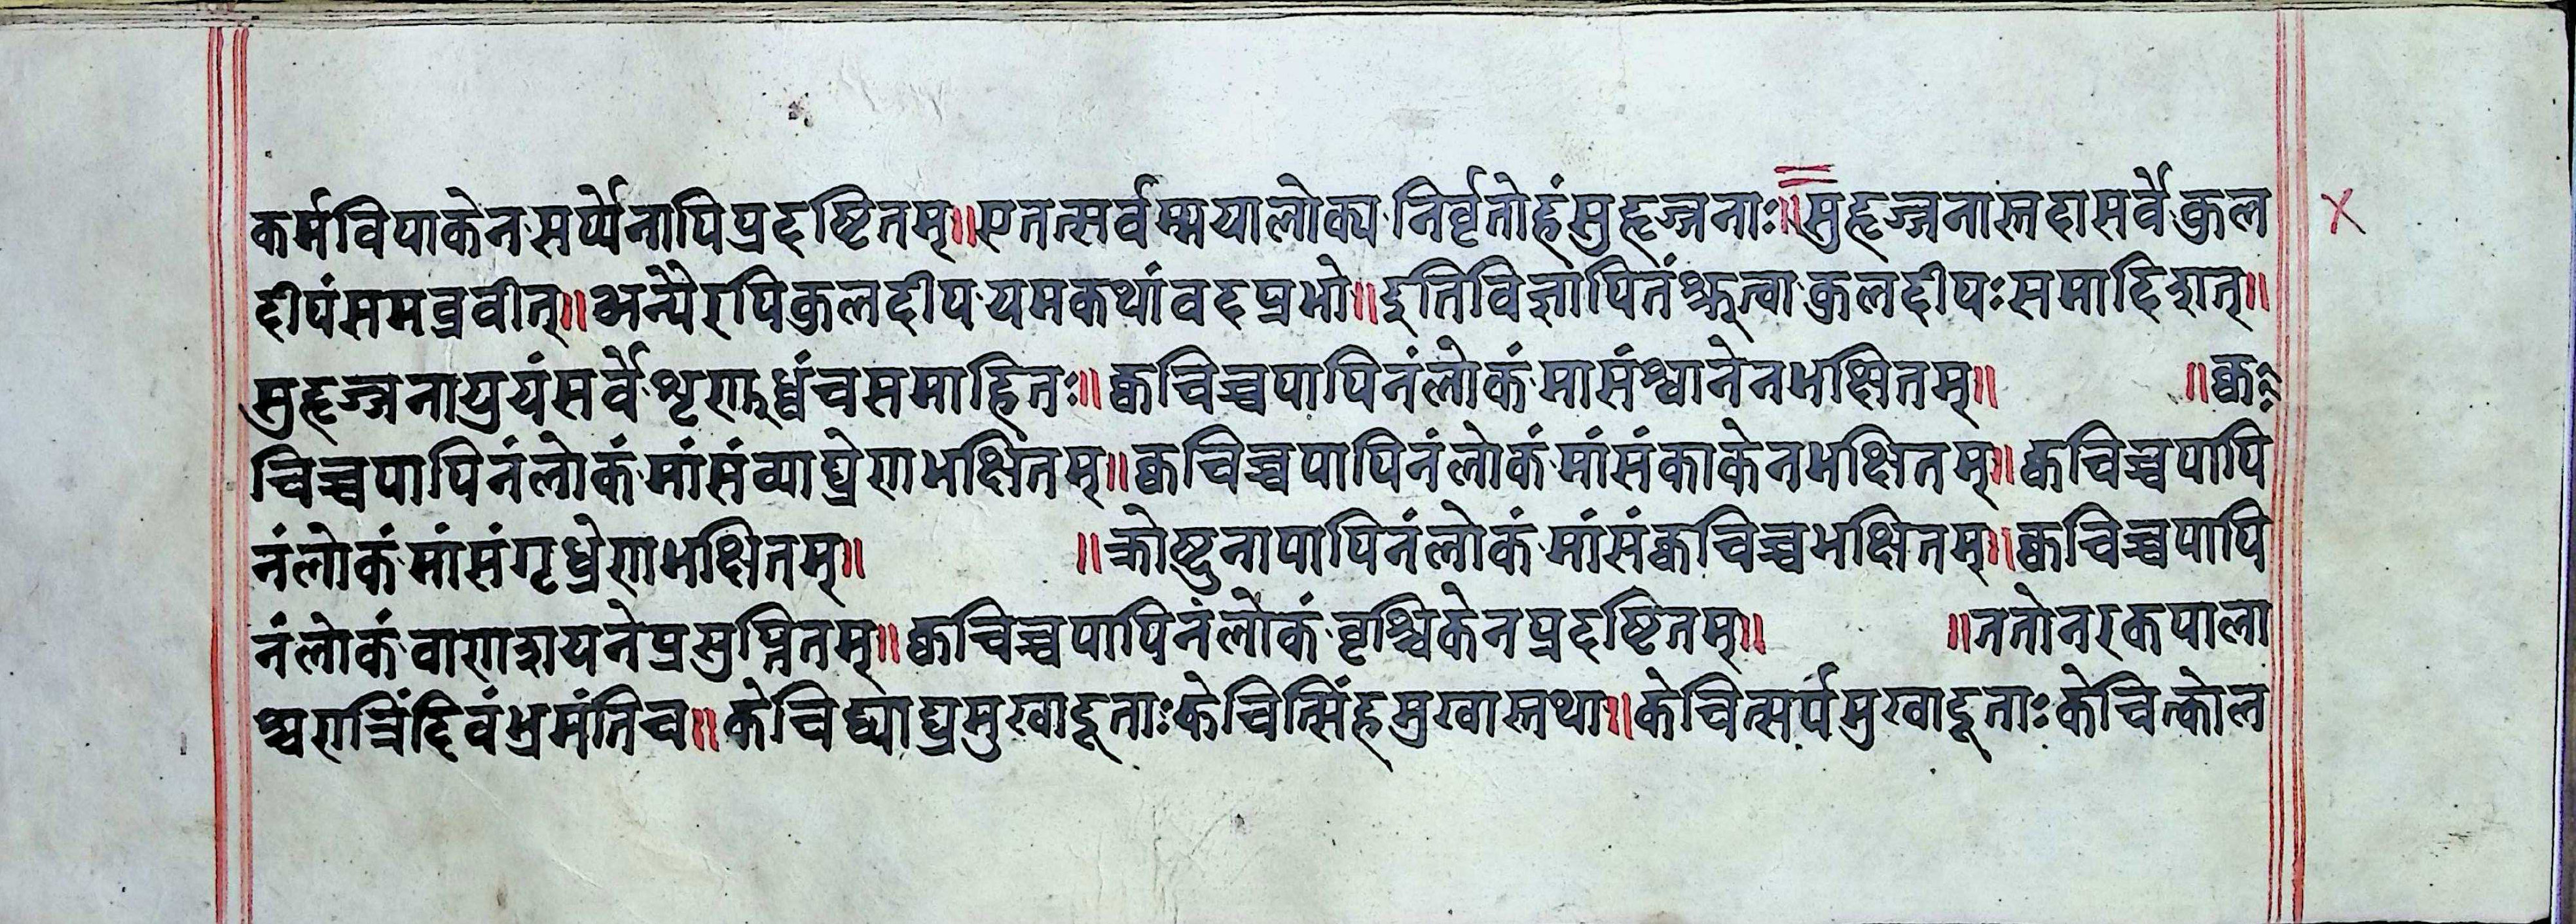 कर्मविपाकेनसर्प्पेनापिप्रदष्टितम्॥एतत्सर्वम्मयालोक्यनिर्वृतोहंसुहृज्जनाः॥सुहृज्जनास्तदासर्वेकुल
दीपंसमब्रवीत्॥अन्यैरपिकुलदीपयमकथांवदप्रभो॥इतिविज्ञापितंश्रुत्वाकुलदीपःसमादिशत्॥
सुहृज्जनायुयंसर्वेशृणुध्वंचसमाहितः॥क्वचिच्चपापिनंलोकंमासंश्वानेनभक्षितम्॥ ॥क्व
चिच्चपापिनंलोकंमांसंव्याघ्रेणभक्षितम्॥क्वचिच्चपापिनंलोकंमांसंकाकेनभक्षितम्॥क्वचिच्चपापि
नंलोकंमांसंगृध्रेणभक्षितम्॥ ॥क्रोष्टुनापापिनंलोकंमांसंक्वचिच्चभक्षितम्॥क्वचिच्चपापि
नंलोकंवाणशयनेप्रसुप्तितम्॥क्वचिच्चपापिनंलोकंवृश्चिकेनप्रदष्टितम्॥ ॥ततोनरकपाला
श्चरात्रिंदिवंभ्रमंतिच॥केचिद्व्याघ्रमुखादूताःकेचित्सिंहमुखास्तथा॥केचित्सर्पमुखादूताःकेचित्कोल